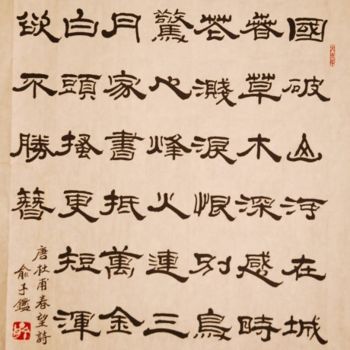 國破山河在城
春草木深感時
花濺淚恨別鳥
驚心烽火連三
月家書抵萬金
白頭搔更短渾
欲不勝簪
唐杜甫春望詩
俞子鑑